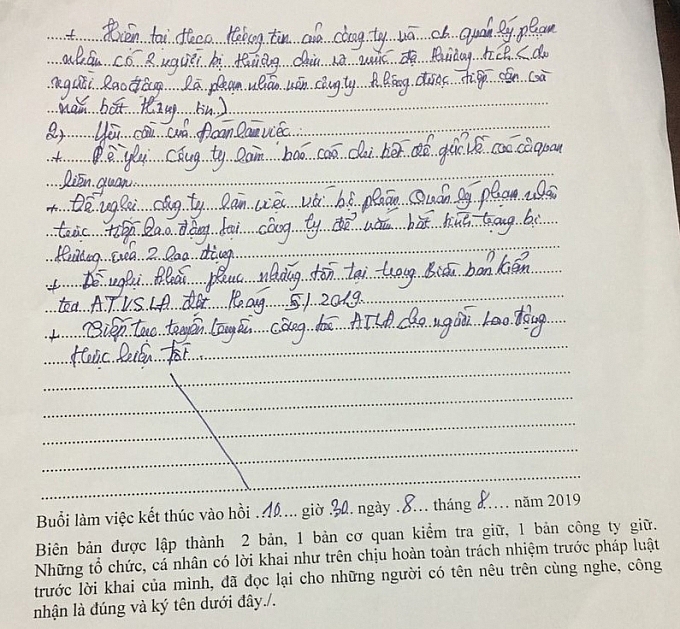 + Hiện tại theo thông tin của công ty và ch quản lý phạm
nhân có 2 người bị thương chưa rõ mức độ thương tích (do
người lao động là phạm nhân nên công ty không được tiếp cận và
nắm bắt thông tin)
2) Yêu cầu của Đoàn làm việc
+ Đề nghị công ty làm báo cáo chi tiết để gửi về các cơ quan
liên quan
+ Đề nghị công ty làm việc với bộ phận Quản lý phạm nhân
trực tiếp lao động tại công ty để nắm bắt tình trạng bị
thương của 2 lao động
+ Đề nghị khắc phục những tồn tại trong Biên bản kiểm
tra ATVSLĐ đợt tháng 5/2019.
+ Tiếp tục tuyên truyền công tác ATLĐ cho người lao động
thực hiện tốt.
Buổi làm việc kết thúc vào hồi .10... giờ 30. ngày .8... tháng 8..... năm 2019
Biên bản được lập thành 2 bản, 1 bản cơ quan kiểm tra giữ, 1 bản công ty giữ.
Những tổ chức, cá nhân có lời khai như trên chịu hoàn toàn trách nhiệm trước pháp luật
trước lời khai của mình, đã đọc lại cho những người có tên nêu trên cùng nghe, công
nhận là đúng và ký tên dưới đây./.